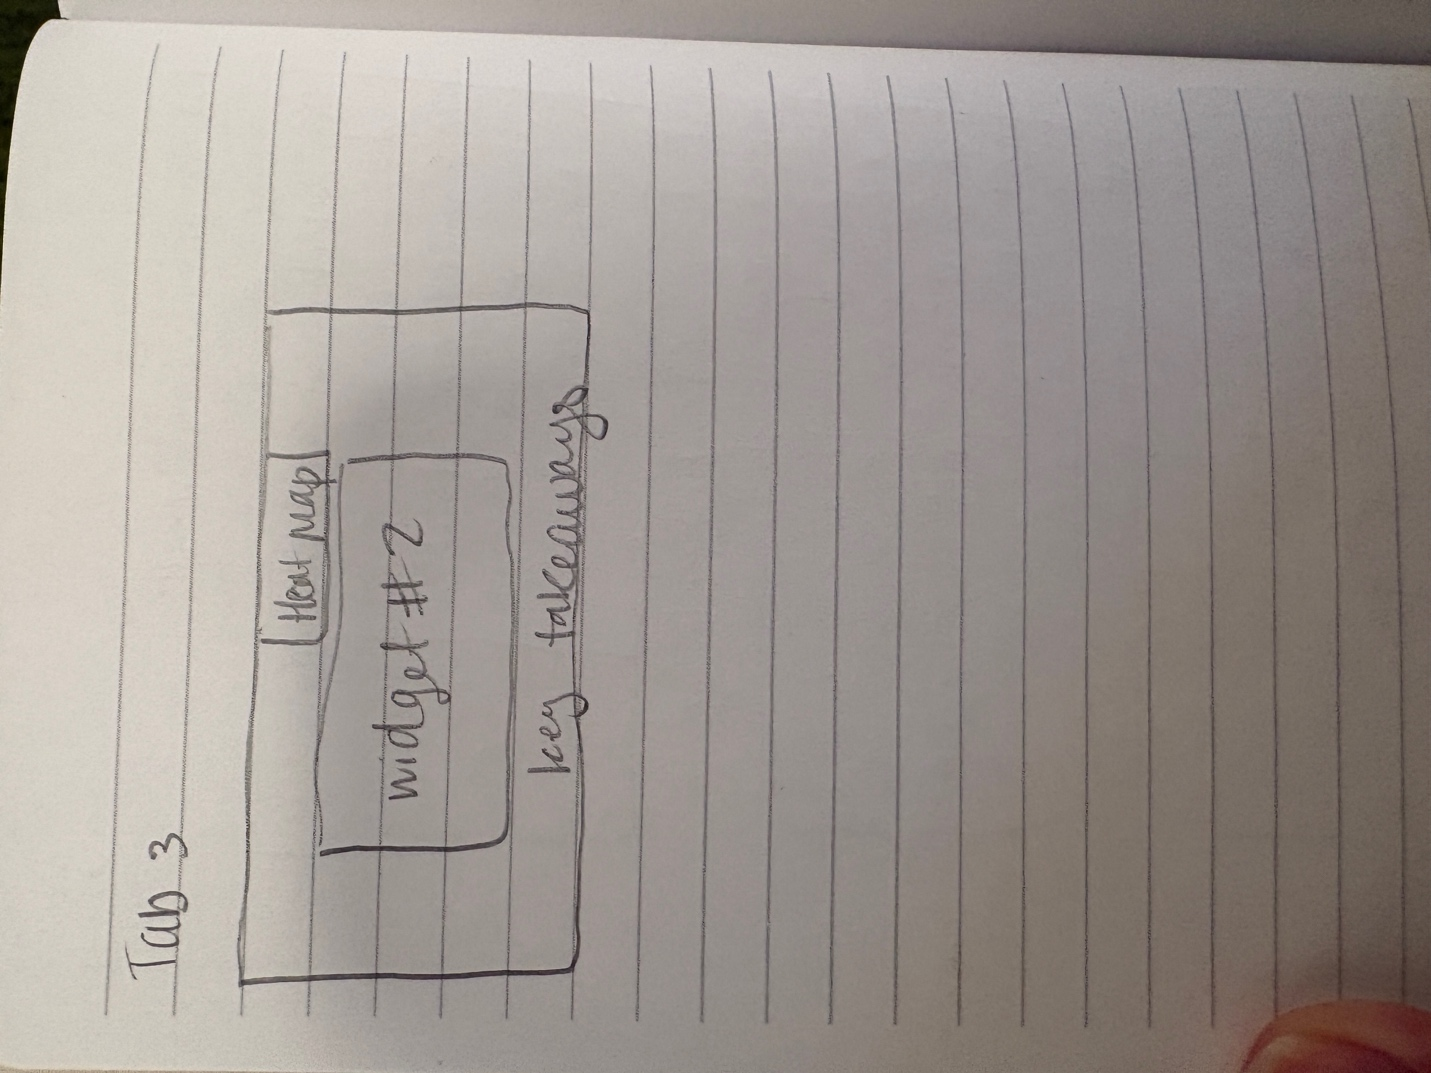 Tab 3
Heat map
widget #2
key takeaways